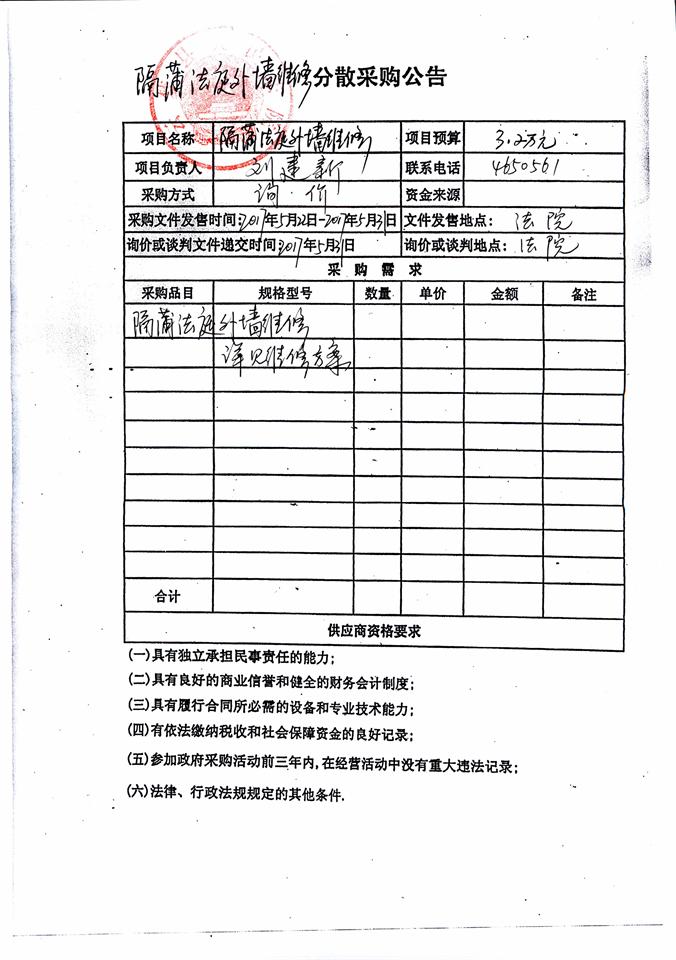 隔蒲法庭外墙维修分散采购公告
项目名称 隔蒲法庭外墙维修 项目预算 3.2万元
项目负责人 刘建新 联系电话 4650561
采购方式 询价 资金来源
采购文件发售时间:2017年5月22日-2017年5月31日 文件发售地点: 法院
询价或谈判文件递交时间:2017年5月31日 询价或谈判地点: 法院
采购需求
采购品目 规格型号 数量 单价 金额 备注
隔蒲法庭外墙维修
详见维修方案
合计
供应商资格要求
(一)具有独立承担民事责任的能力;
(二)具有良好的商业信誉和健全的财务会计制度;
(三)具有履行合同所必需的设备和专业技术能力;
(四)有依法缴纳税收和社会保障资金的良好记录;
(五)参加政府采购活动前三年内,在经营活动中没有重大违法记录;
(六)法律、行政法规规定的其他条件.